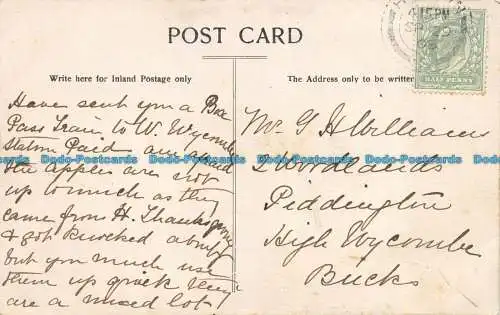 POST CARD
Write here for Inland Postage only
The Address only to be written
HALF PENNY
Have sent you a Box
Pass Train to W. Wycombe
Station Paid am afraid
the apples are not
up to much as they
came from H. Thanksgiving
& got knocked about
but you must use
them up quick they
are a mixed lot
Mr G H Williams
Woodlands
Piddington
High Wycombe
Bucks
Dodo-Postcards Dodo-Postcards Dodo-Postcards Dodo-Postcards